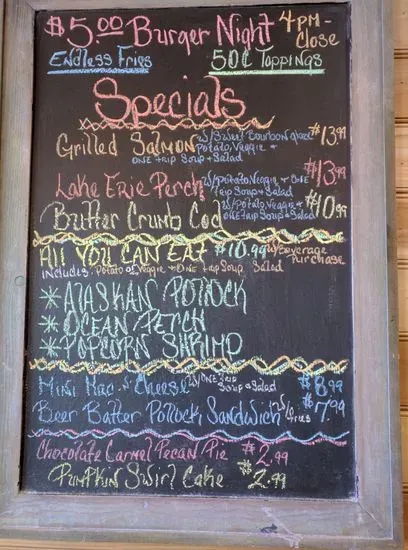 $5.00 Burger Night 4pm-Close
Endless Fries 50¢ Toppings
Specials
Grilled Salmon w/Sweet Bourbon glaze $13.99
potato, Veggie +
ONE trip Soup + Salad
Lake Erie Perch w/potato, Veggie + ONE $13.99
trip Soup + Salad
Butter Crumb Cod w/potato, Veggie + $10.99
one trip Soup + Salad
All You Can Eat $10.99 w/Beverage Purchase
includes: Potato or Veggie + ONE trip Soup Salad
* ALASKAN POLLOCK
* OCEAN PERCH
* POPCORN SHRIMP
Mini Mac n Cheese w/ONE trip Soup + Salad $8.99
Beer Batter Pollock Sandwich w/ fries $7.99
Chocolate Carmel Pecan Pie $2.99
Pumpkin Swirl Cake $2.99